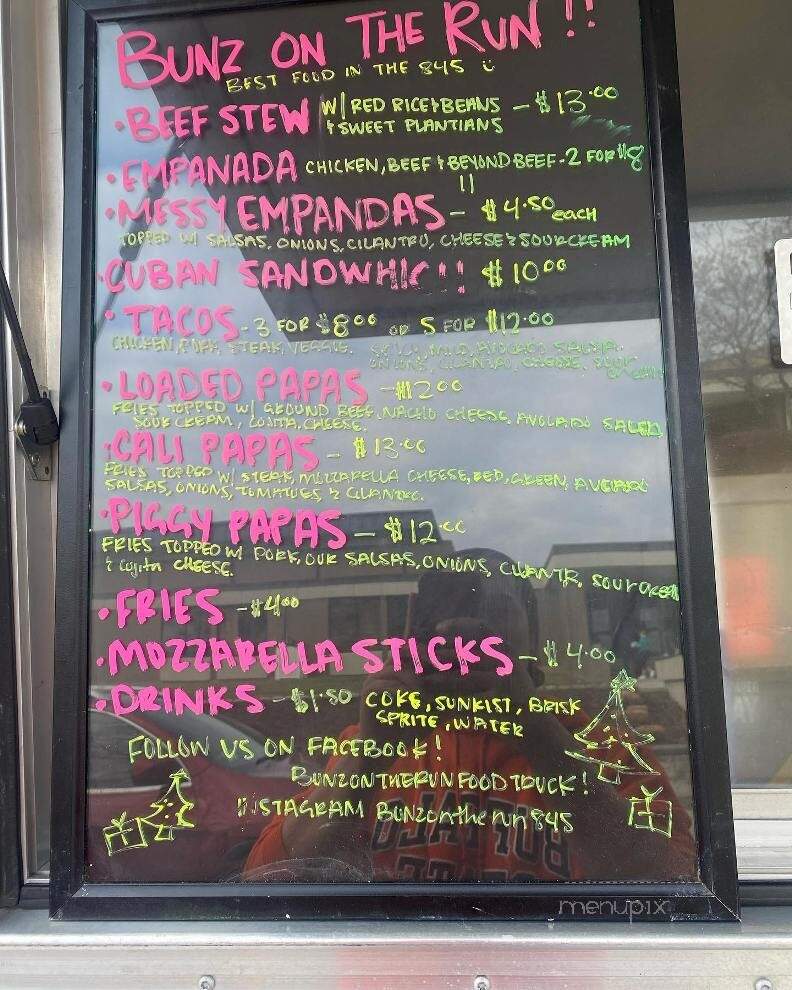 BUNZ ON THE RUN !!
BEST FOOD IN THE 845
• BEEF STEW W/ RED RICE & BEANS - $13.00
& SWEET PLANTIANS
• EMPANADA CHICKEN, BEEF & BEYOND BEEF - 2 FOR $8
• MESSY EMPANDAS - $4.50 each
TOPPED W/ SALSAS, ONIONS, CILANTRO, CHEESE & SOUR CREAM
• CUBAN SANDWHIC!! $10.00
• TACOS - 3 FOR $8.00 OR 5 FOR $12.00
CHICKEN, PORK, STEAK, VEGGIE. MILD, AVOCADO SALSA
ONIONS, CILANTRO, CHEESE, SOUR CREAM
• LOADED PAPAS - $12.00
FRIES TOPPED W/ GROUND BEEF, NACHO CHEESE, AVOCADO SALSA
SOUR CREAM, COJITA CHEESE.
• CALI PAPAS - $13.00
FRIES TOPPED W/ STEAK, MOZZARELLA CHEESE, RED, GREEN, AVOCADO
SALSAS, ONIONS, TOMATOES & CILANTRO.
• PIGGY PAPAS - $12.00
FRIES TOPPED W/ PORK, OUR SALSAS, ONIONS, CILANTR, SOUR CREAM
& Cojita CHEESE.
• FRIES - $4.00
• MOZZARELLA STICKS - $4.00
• DRINKS - $1.50 COKE, SUNKIST, BRISK
SPRITE, WATER
FOLLOW US ON FACEBOOK!
BUNZONTHERUN FOOD TRUCK!
INSTAGRAM Bunzontherun845
BUFFALO
STATE
menupix